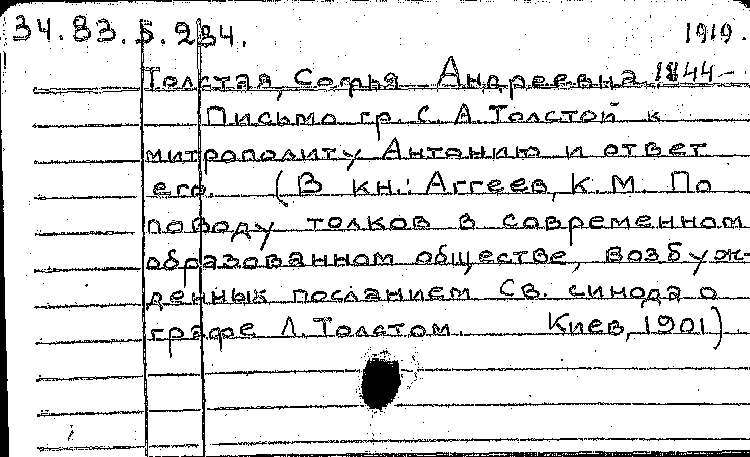 34.83.5.234.
1919.
Толстая, Софья Андреевна, 1844-
Письмо гр. С. А. Толстой к
митрополиту Антонию и ответ
его. (В кн.: Аггеев, К. М. По
поводу толков в современном
образованном обществе, возбуж-
денных посланием Св. синода о
графе Л. Толстом. Киев, 1901)